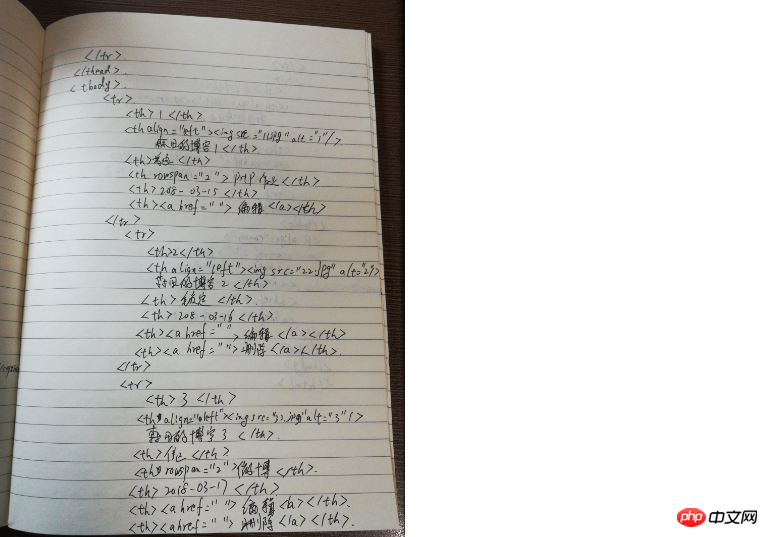 </tr>
</thead>
<tbody>
<tr>
<th>1</th>
<th align="left"><img src="11.jpg" alt="1"/>
的博客1</th>
<th></th>
<th rowspan="2">PHP作业</th>
<th>208-03-15</th>
<th><a href="">编辑</a></th>
</tr>
<tr>
<th>2</th>
<th align="left"><img src="22.jpg" alt="2"/>
的博客2</th>
<th></th>
<th>208-03-16</th>
<th><a href="">编辑</a></th>
<th><a href="">删除</a></th>
</tr>
<tr>
<th>3</th>
<th align="left"><img src="33.jpg" alt="3"/>
的博客3</th>
<th></th>
<th rowspan="2">的博</th>
<th>2018-03-17</th>
<th><a href="">编辑</a></th>
<th><a href="">删除</a></th>
php中文网